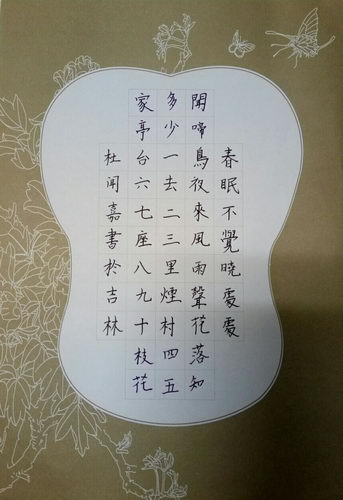 春眠不覺曉處處
聞啼鳥夜來風雨聲花落知
多少一去二三里煙村四五
家亭台六七座八九十枝花
杜聞嘉書於吉林